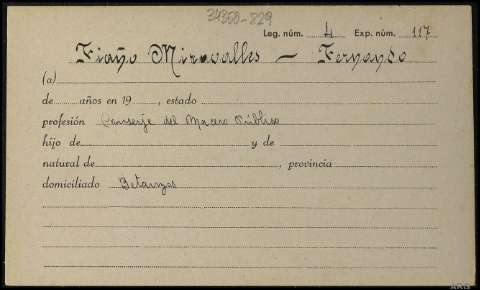 34360-829
Leg. núm. 4 Exp. núm. 117
Fiaño Miravalles – Fernando
(a)
de años en 19 , estado
profesión Conserje del Macero Público
hijo de y de
natural de , provincia
domiciliado Betanzos